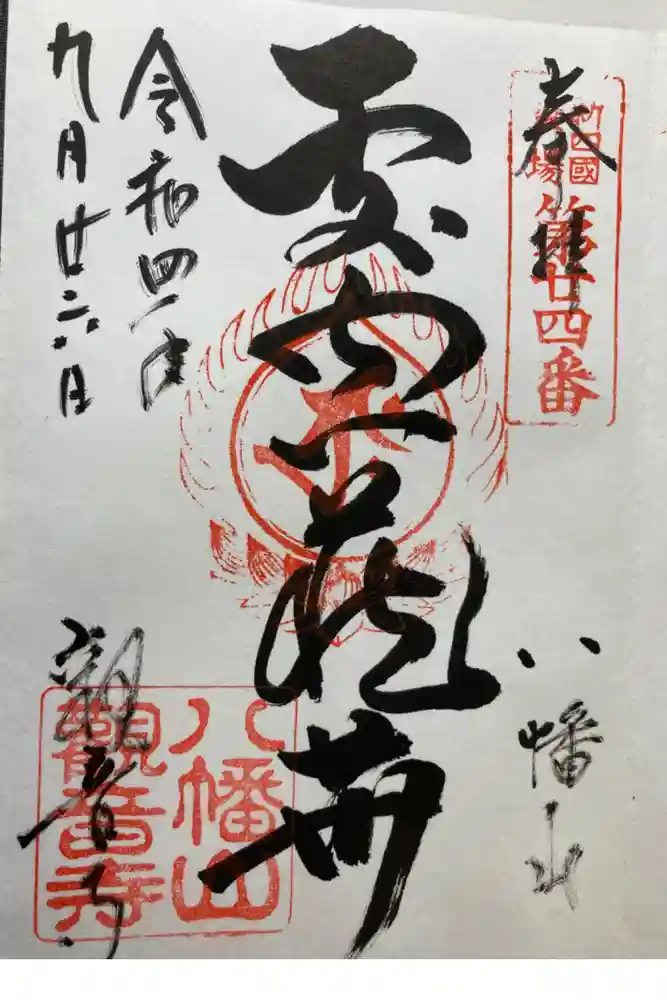 奉拝
四國
場
第廿四番
八幡山
虚空蔵
八幡山
觀音寺
観音寺
令和四年
九月廿六日